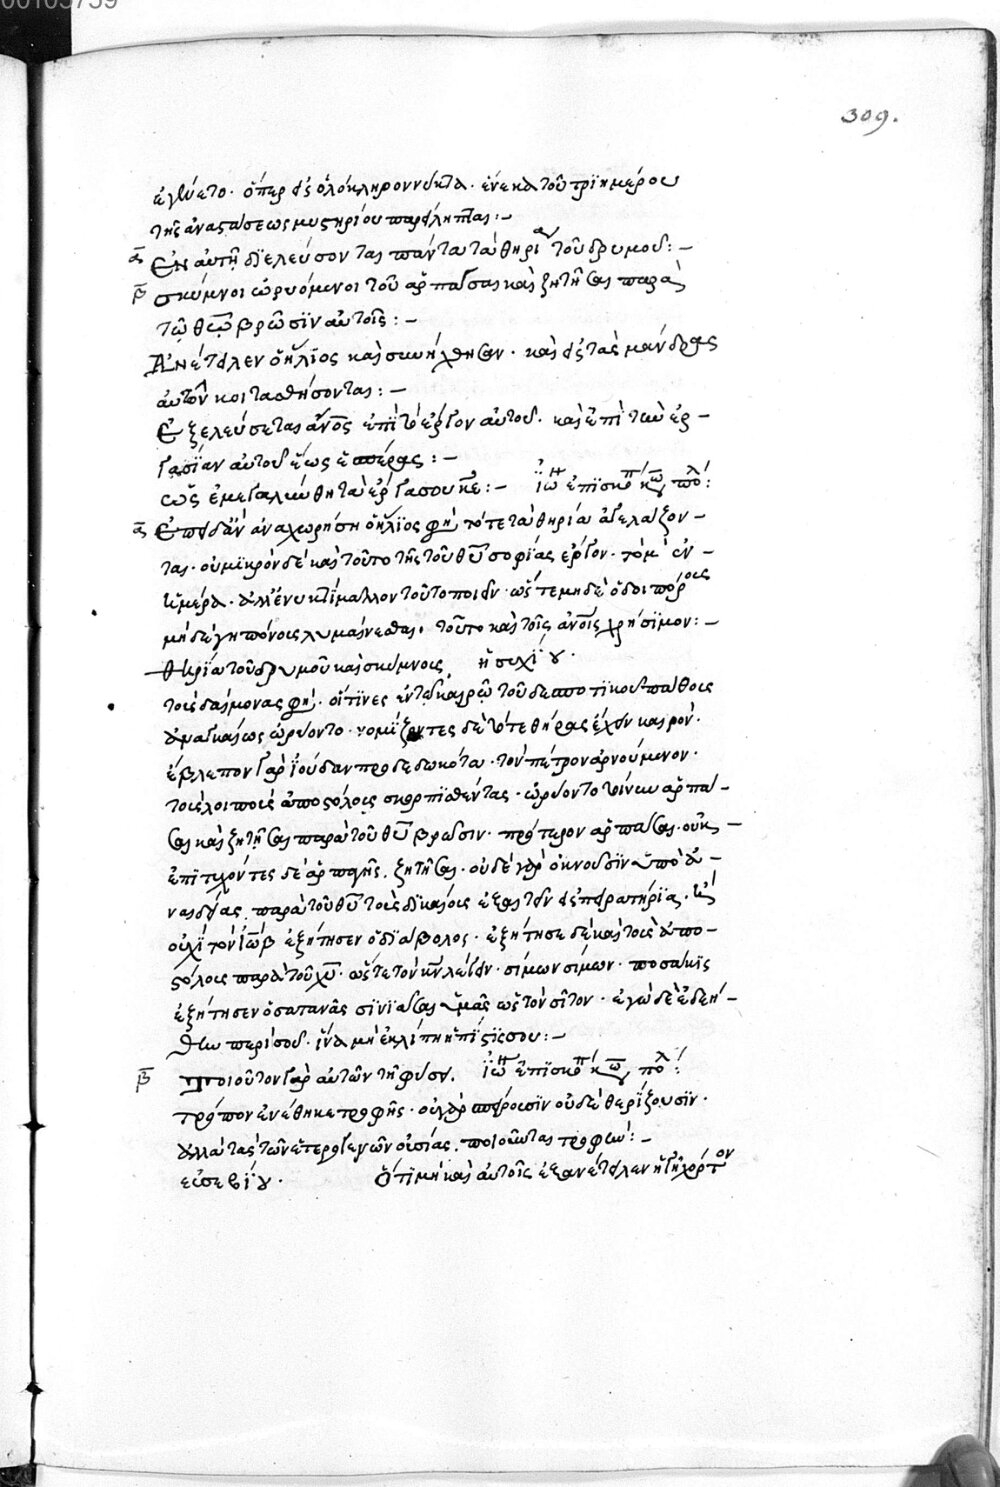 309.
ἐγένετο. ὅπερ εἰς ὁλόκληρον νύκτα. ἕνεκα τοῦ τριημέρου
τῆς ἀναστάσεως μυστηρίου παρείληπται:–
α Ἐν αὐτῇ διελεύσονται πάντα τὰ θηρία τοῦ δρυμοῦ:–
β σκύμνοι ὠρυόμενοι τοῦ ἁρπάσαι καὶ ζητῆσαι παρὰ
τῷ θεῷ βρῶσιν αὐτοῖς:–
Ἀνέτειλεν ὁ ἥλιος καὶ συνήχθησαν. καὶ εἰς τὰς μάνδρας
αὐτῶν κοιτασθήσονται:–
Ἐξελεύσεται ἄνος ἐπὶ τὸ ἔργον αὐτοῦ. καὶ ἐπὶ τὴν ἐρ–
γασίαν αὐτοῦ ἕως ἑσπέρας:–
ὡς ἐμεγαλύνθη τὰ ἔργα σου κε:– ἐπισκο
α Ἐπειδὰν ἀναχωρήσῃ ὁ ἥλιος φησὶ τότε τὰ θηρία ἀγελάζον–
ται. οὐ μικρὸν δὲ καὶ τοῦτο τῆς τοῦ θυ σοφίας ἔργον. τὸ μὴ ἐν–
ἡμέρᾳ. ἀλλ' ἐν νυκτὶ μᾶλλον τοῦτο ποιεῖν. ὥστε μηδὲ ὁδοιπόροις
μηδὲ γηπόνοις λυμαίνεσθαι. τοῦτο καὶ τοῖς ἀνοις χρήσιμον:–
Θηρία τοῦ δρυμοῦ καὶ σκύμνοις ἡσυχίου.
τοὺς δαίμονας φησί. οἵτινες ἐν τῷ καιρῷ τοῦ δεσποτικοῦ πάθους
ἀναγκαίως ὠρύοντο. νομίζοντες δὲ τότε θήρας ἔχειν καιρόν.
ἔβλεπον γὰρ ἰούδαν προδεδωκότα. τὸν πέτρον ἀρνούμενον.
τοὺς λοιποὺς ἀποστόλους σκορπισθέντας. ὠρύοντο τοίνυν ἁρπά–
σαι καὶ ζητῆσαι παρὰ τοῦ θυ βρῶσιν. πρότερον ἁρπάσαι. οὐκ–
ἐπιτυχόντες δὲ ἁρπαγῆς. ζητῆσαι. οὐδὲ γὰρ ὀκνοῦσιν ὑπὸ ἀ–
ναιδείας παρὰ τοῦ θυ τοὺς δικαίους ἐξαιτεῖν εἰς πειρατήρια.
οὐχὶ τὸν ἰὼβ ἐξήτησεν ὁ διάβολος. ἐξήτησε δὲ καὶ τοὺς ἀπο–
στόλους παρὰ τοῦ χυ. ὥστε τὸν κν λέγειν. σίμων σίμων. ποσάκις
ἐξήτησεν ὁ σατανᾶς σινιάσαι ὑμᾶς ὡς τὸν σῖτον. ἐγὼ δὲ ἐδεή–
θην περί σου. ἵνα μὴ ἐκλίπῃ ἡ πίστις σου:–
β Τοιοῦτον γὰρ αὐτῶν τῇ φύσει. ἐπισκο
τρόπον ἐνέθηκε τροφῆς. οὐ γὰρ σπείρουσιν οὐδὲ θερίζουσιν.
ἀλλὰ τὰς τῶν ἑτερογενῶν οὐσίας. ποιοῦνται τροφήν:–
εὐσεβίου. Ὅτι μὴ καὶ αὐτοῖς ἐξανέτειλεν ἡ γῆ χόρτον